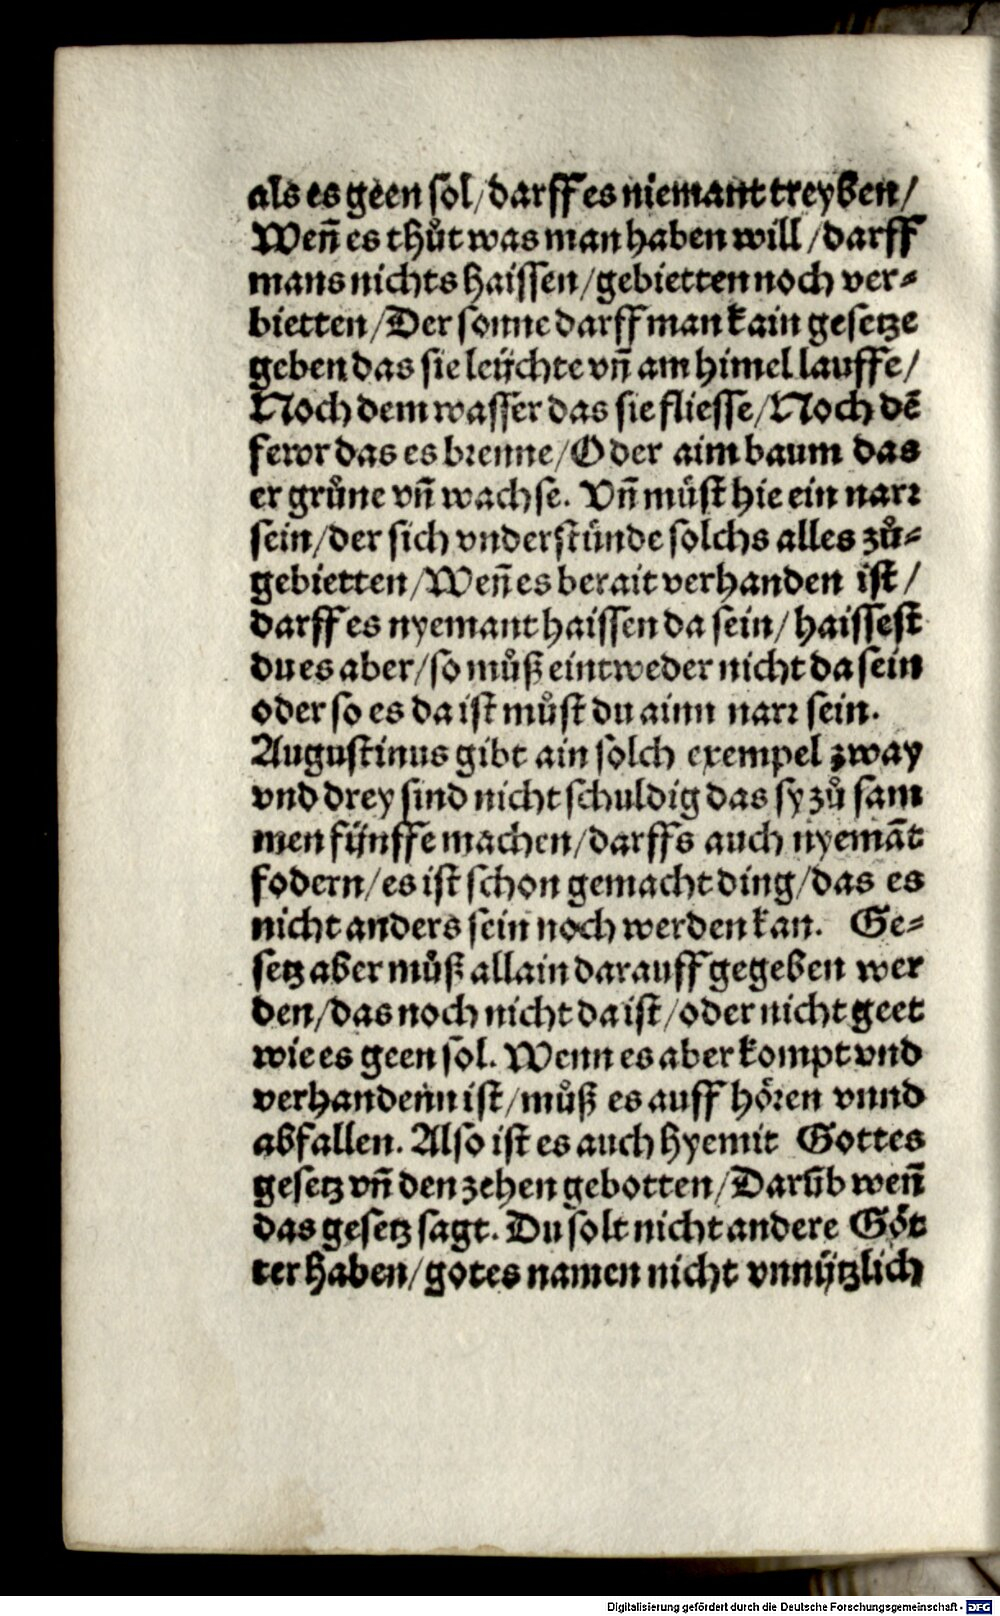 als es geen sol/darff es niemant treyben/
Weñ es thůt was man haben will/darff
mans nichts haissen/gebietten noch ver⸗
bietten/Der sonne darff man kain gesetze
geben das sie leüchte vñ am himel lauffe/
Noch dem wasser das sie fliesse/Noch dẽ
fewr das es brenne/Oder aim baum das
er grůne vñ wachse. Vñ můst hie ein narr
sein/der sich vnderstünde solchs alles zů⸗
gebietten/Weñ es berait verhanden ist/
darff es nyemant haissen da sein/haissest
du es aber/so můß eintweder nicht da sein
oder so es da ist můst du ainn narr sein.
Augustinus gibt ain solch exempel zway
vnd drey sind nicht schuldig das sy zů sam
men fünffe machen/darffs auch nyemãt
fodern/es ist schon gemacht ding/das es
nicht anders sein noch werden kan. Ge⸗
setz aber můß allain darauff gegeben wer
den/das noch nicht da ist/oder nicht geet
wie es geen sol. Wenn es aber kompt vnd
verhandenn ist/můß es auff hören vnnd
abfallen. Also ist es auch hyemit Gottes
gesetz vñ den zehen gebotten/Darũb weñ
das gesetz sagt. Du solt nicht andere Göt
ter haben/gotes namen nicht vnnützlich
Digitalisierung gefördert durch die Deutsche Forschungsgemeinschaft - DFG